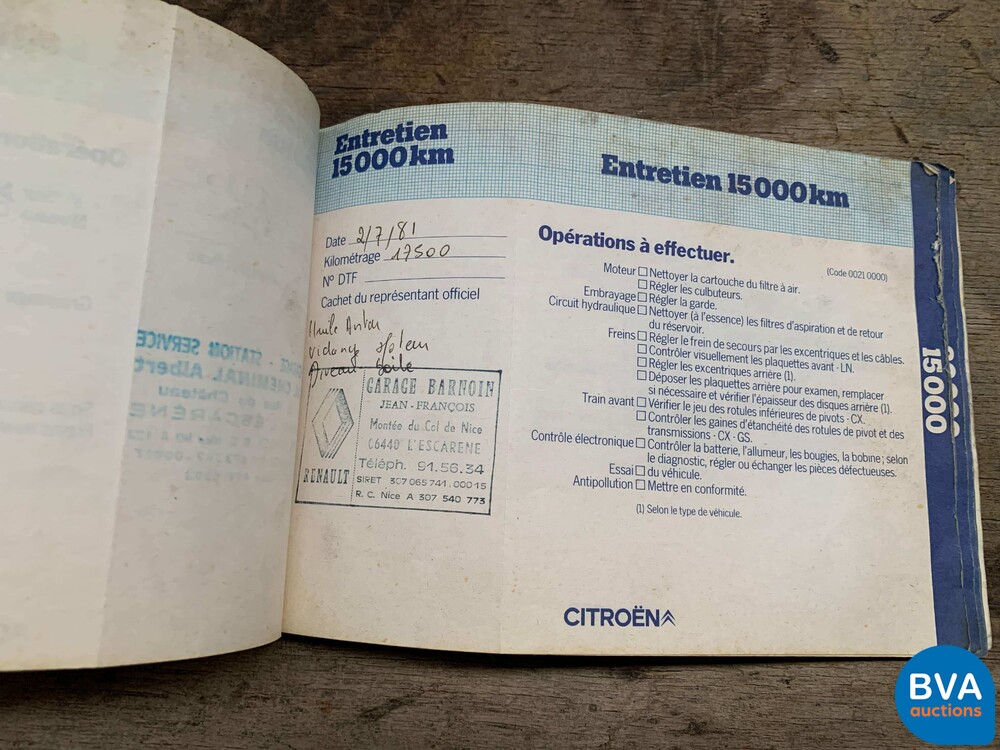 Entretien
15000km
Date 2/7/81
Kilométrage 17500
N° DTF
Cachet du représentant officiel
Huile Antar
Vidange
GARAGE BARNOIN
JEAN-FRANÇOIS
Montée du Col de Nice
06440 L'ESCARENE
Téléph. 91.56.34
SIRET 307 065 741 . 00015
R. C. Nice A 307 540 773
RENAULT
Entretien 15000km
Opérations à effectuer.
(Code 0021 0000)
Moteur Nettoyer la cartouche du filtre à air.
Régler les culbuteurs.
Embrayage Régler la garde.
Circuit hydraulique Nettoyer (à l'essence) les filtres d'aspiration et de retour
du réservoir.
Freins Régler le frein de secours par les excentriques et les câbles.
Contrôler visuellement les plaquettes avant - LN.
Régler les excentriques arrière (1).
Déposer les plaquettes arrière pour examen, remplacer
si nécessaire et vérifier l'épaisseur des disques arrière (1).
Train avant Vérifier le jeu des rotules inférieures de pivots - CX.
Contrôler les gaines d'étanchéité des rotules de pivot et des
transmissions - CX - GS.
Contrôle électronique Contrôler la batterie, l'allumeur, les bougies, la bobine; selon
le diagnostic, régler ou échanger les pièces défectueuses.
Essai du véhicule.
Antipollution Mettre en conformité.
(1) Selon le type de véhicule.
CITROËN
15000
STATION SERVICE
CHEMINAL Albert
Château
ESCARÈNE
BVA
auctions